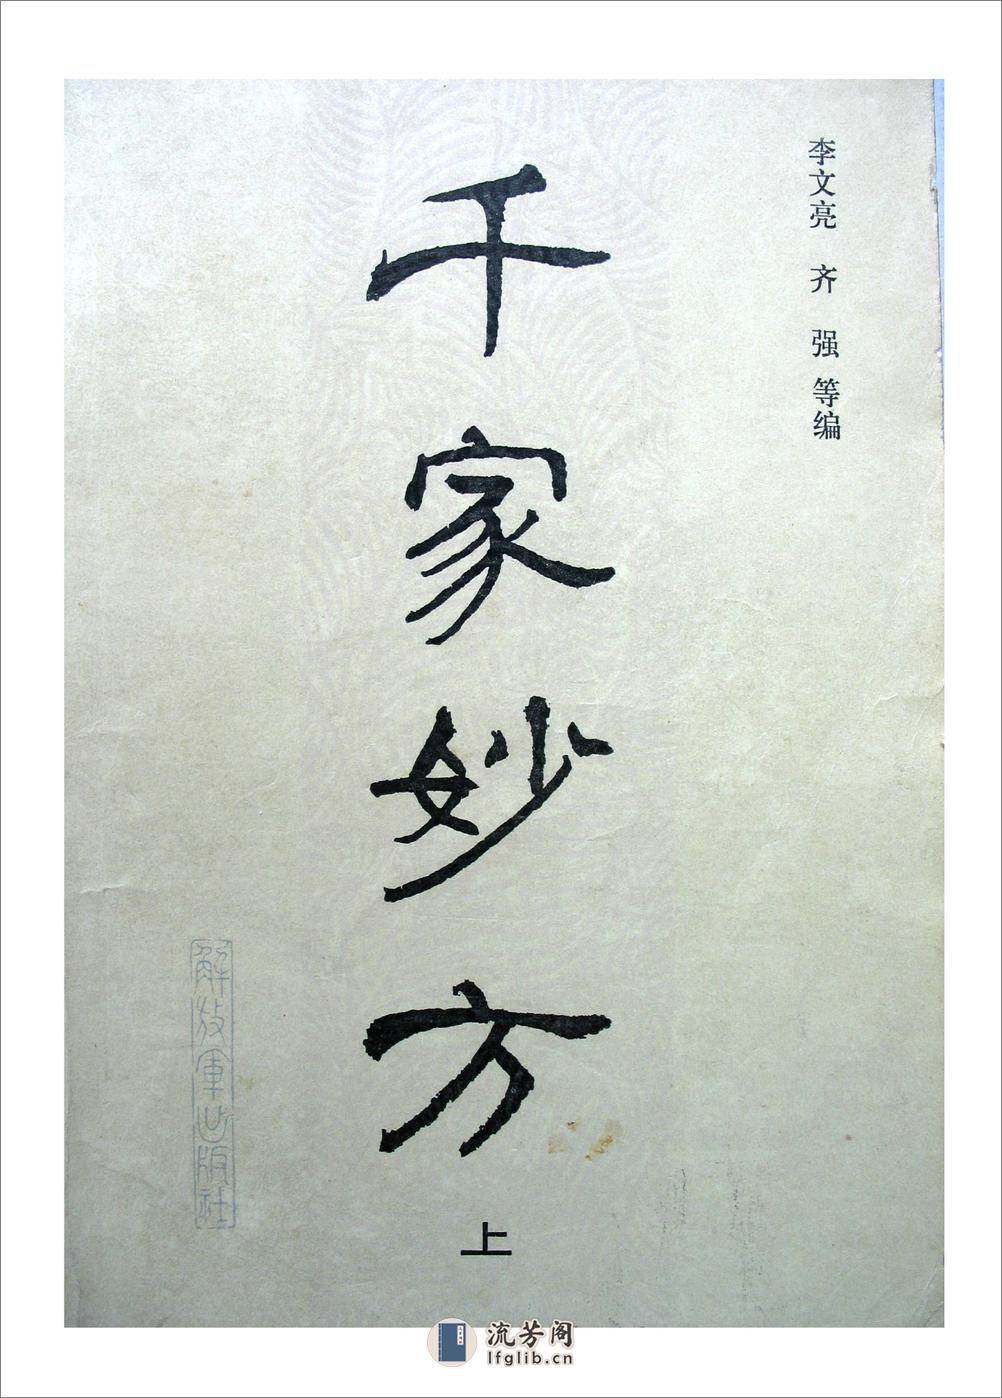 李文亮 齐 强 等编
千家妙方
上
解放軍出版社
流芳阁
lfglib.cn